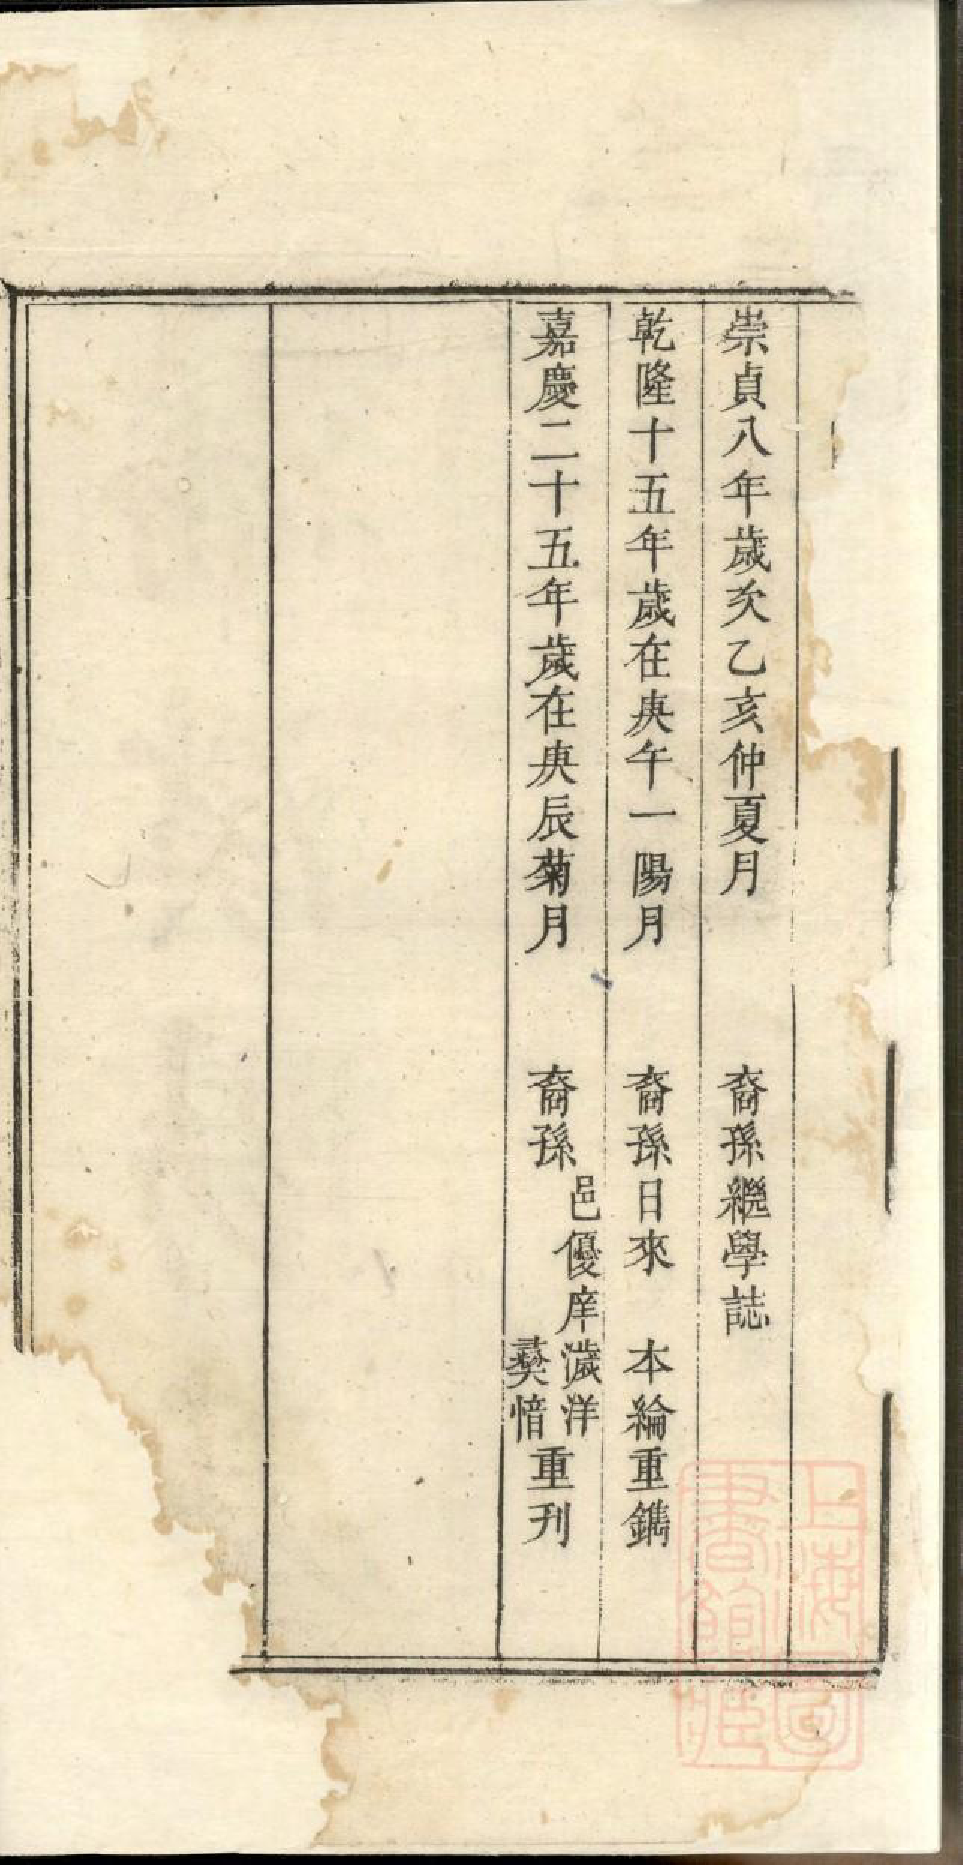 崇貞八年歲次乙亥仲夏月 裔孫繼學誌
乾隆十五年歲在庚午一陽月 裔孫日來 本綸重鐫
嘉慶二十五年歲在庚辰菊月 裔孫 邑優庠 濊洋 彝愔 重刊
上海圖
書館藏